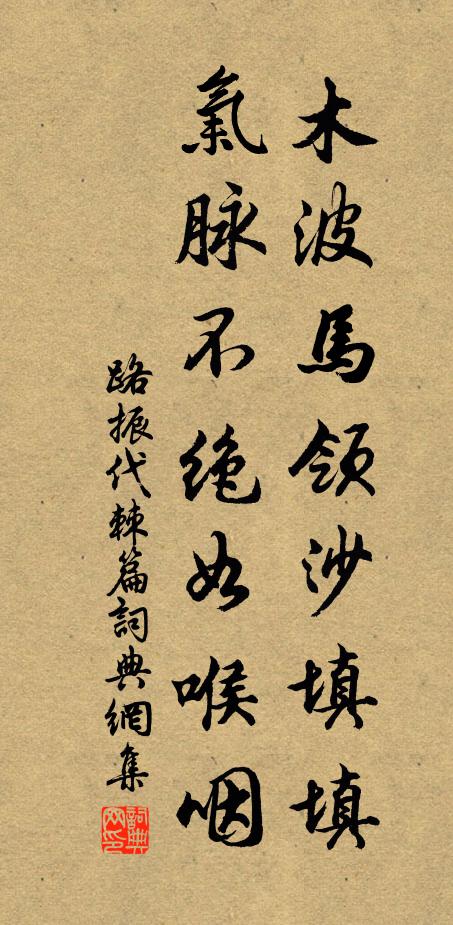 木波馬領沙填填
氣脉不絶如喉咽
路振代棘篇詞典網集
詞典
网印